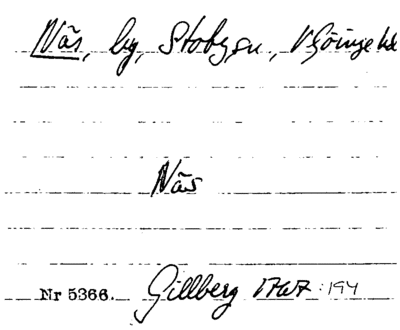 Näs, by, Stoby sn, V Göinge hd
Näs
Nr 5366. Gillberg 1767 : 194